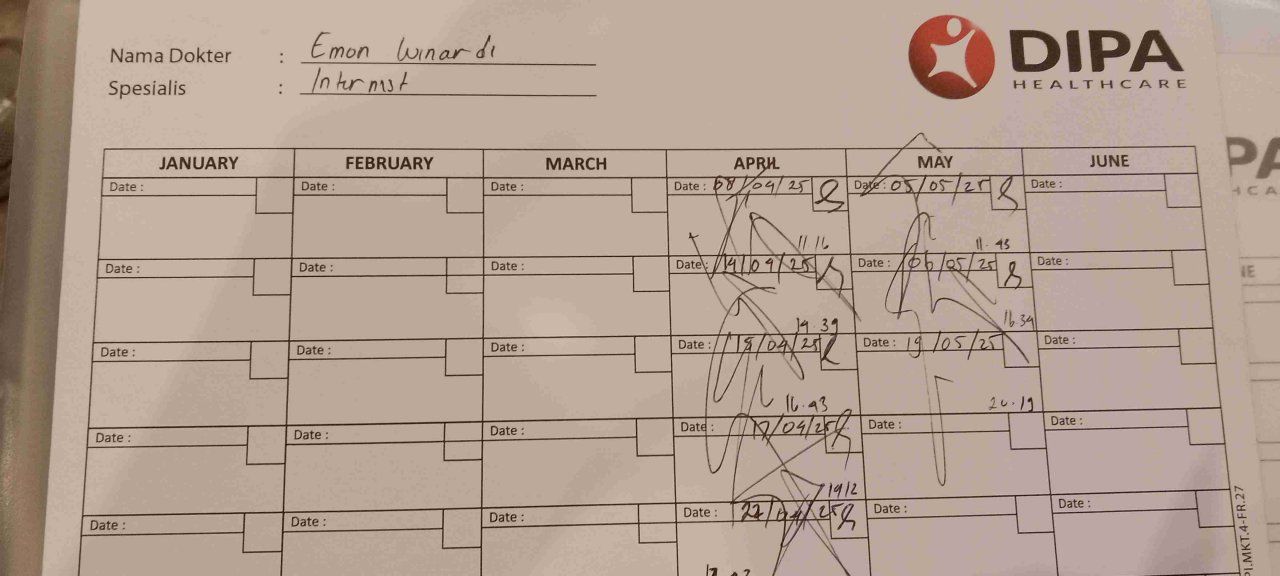 Nama Dokter : Emon Winardi
Spesialis : Internist
DIPA
HEALTHCARE
JANUARY FEBRUARY MARCH APRIL MAY JUNE
Date : Date : Date : Date : 08/04/25 Date : 05/05/25 Date :
11 16 11.43
Date : Date : Date : Date : 14/04/25 Date : 06/05/25 Date :
14.39 16.34
Date : Date : Date : Date : 15/04/25 Date : 19/05/25 Date :
16.43 20.19
Date : Date : Date : Date : 17/04/25 Date : Date :
1912
Date : Date : Date : Date : 22/04/25 Date : Date :
PI.MKT.4-FR.27